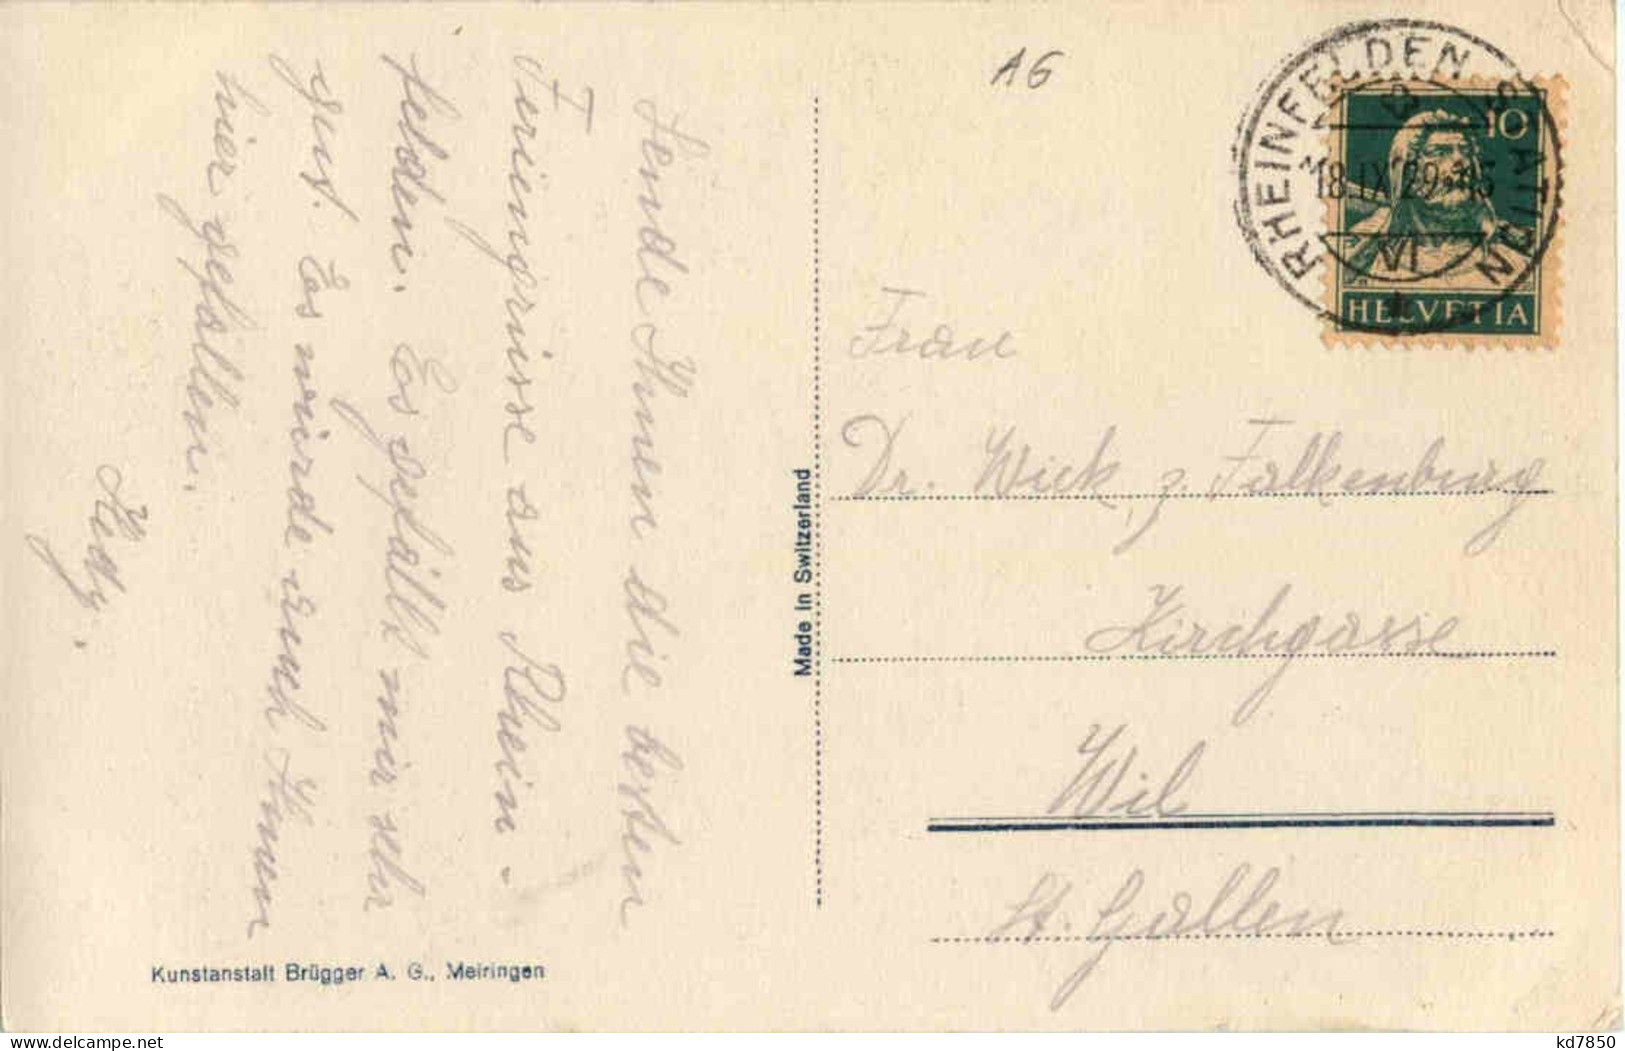 Sende Ihnen die besten
Feriengrüsse aus Rhein-
felden. Es gefällt mir sehr
gut. Es würde auch Ihnen
hier gefallen.
Hedy.
Kunstanstalt Brügger A. G., Meiringen
Made in Switzerland
AG
RHEINFELDEN STATION
18.IX.29
VI
10
HELVETIA
Frau
Dr. Wick, z. Falkenburg
Kirchgasse
Wil
St. Gallen
kd7850